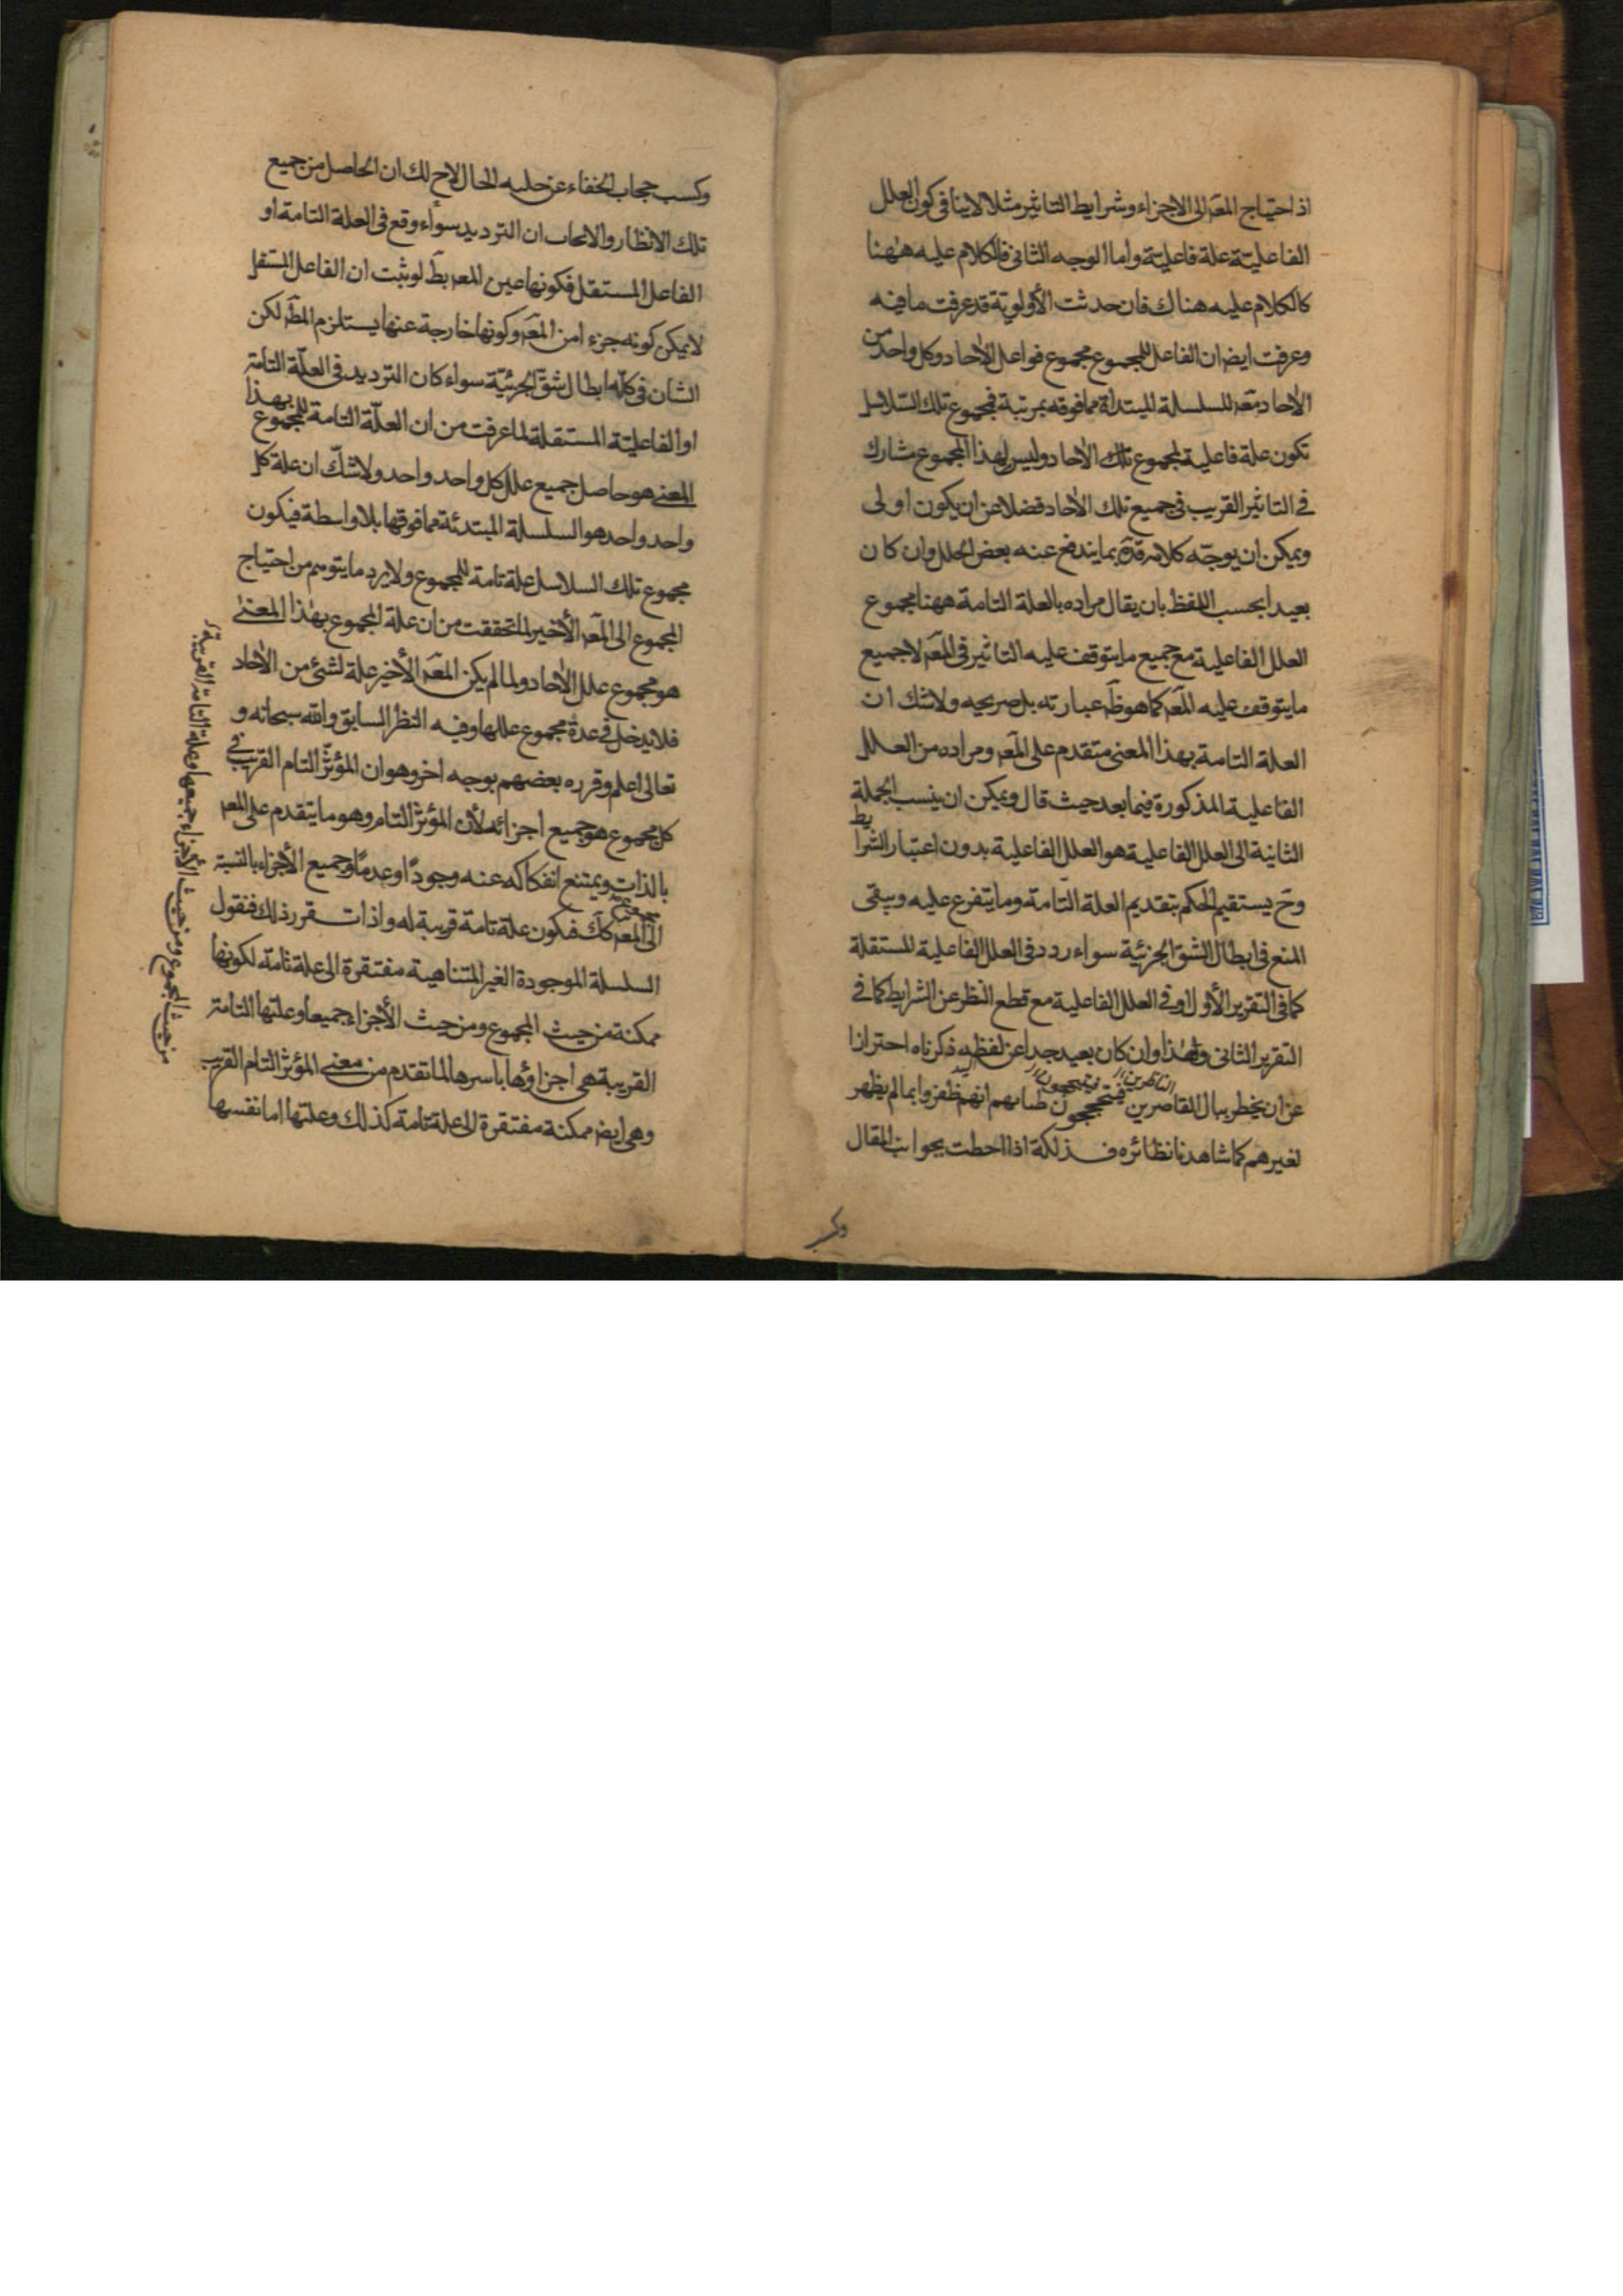 اذ احتياج المعه الى الاجزاء وشرايط التاثير مثلا لا ينافى كون العلل
الفاعليّة علة فاعليّة واما الوجه الثانى فالكلام عليه ههنا
كالكلام عليه هناك فان حدثت الأولويّة قد عرفت ما فيه
وعرفت ايض ان الفاعل للمجموع مجموع فواعل الآحاد وكل واحد من
الآحاد معه للسلسلة المبتدأة مما فوقه بمرتبة فمجموع تلك السلاسل
تكون علة فاعلية لمجموع تلك الآحاد وليس لهذا المجموع مشارك
فى التاثير القريب فى جميع تلك الآحاد فضلا عن ان يكون اولى
ويمكن ان يوجّه كلامه قدّه بما يندفع عنه بعض الخلل وان كان
بعيدا بحسب اللفظ بان يقال مراده بالعلة التامة ههنا مجموع
العلل الفاعلية مع جميع ما يتوقف عليه التاثير فى المعه لا جميع
ما يتوقف عليه المعه كما هو ظه عبارته بل صريحه ولا شك ان
العلة التامة بهذا المعنى متقدم على المعه ومراده من العلل
الفاعلية المذكورة فيما بعد حيث قال ويمكن ان ينسب الجملة
الثانية الى العلل الفاعلية هو العلل الفاعلية بدون اعتبار الشرايط
وح يستقيم الحكم بتقديم العلة التامة وما يتفرع عليه ويبقى
المنع فى ابطال الشق الجزئية سواء ردد فى العلل الفاعلية المستقلة
كما فى التقرير الأول او فى العلل الفاعلية مع قطع النظر عن الشرايط كما فى
التقرير الثانى وهذا وان كان بعيد جدا عن لفظه ذكرناه احترازا
عن ان يخطر ببال القاصرين فيتبجحون انهم ظفروا بما لم يظهر
لغيرهم كما شاهدنا نظائره فذلكة اذا احطت بجوانب المقال
وكسب حجاب الخفاء عن حليه الحال لاح لك ان الحاصل من جميع
تلك الانظار والابحاث ان الترديد سواء وقع فى العلة التامة او
الفاعل المستقل فكونها عين المعه بط لو ثبت ان الفاعل المستقل
لا يمكن كونه جزءا من المعه وكونها خارجة عنها يستلزم المطه لكن
الشان فى كله ابطال شق الجزئيّة سواء كان الترديد فى العلّة التامّة
او الفاعليّة المستقلة لما عرفت من ان العلّة التامة للمجموع بهذا
المعنى هو حاصل جميع علل كل واحد واحد ولا شكّ ان علة كل
واحد واحد هو السلسلة المبتدئة مما فوقها بلا واسطة فيكون
مجموع تلك السلاسل علة تامة للمجموع ولا يرد ما يتوهم من احتياج
المجموع الى المعه الأخير لما تحققت من ان علة المجموع بهذا المعنى
هو مجموع علل الآحاد ولما لم يكن المعه الأخير علة لشئ من الآحاد
فلا يدخل فى عدة مجموع عللها وفيه النظر السابق والله سبحانه و
تعالى اعلم وقرره بعضهم بوجه اخر وهو ان المؤثّر التام القريب فى
كل مجموع هو جميع اجزائه لأن المؤثّر التام وهو ما يتقدم على المعه
بالذات ويمتنع انفكاكه عنه وجودًا وعدمًا وجميع الأجزاء بالنسبة
الى المعه كك فيكون علة تامة قريبة له واذا تقرر ذلك فنقول
السلسلة الموجودة الغير المتناهية مفتقرة الى علة تامّة لكونها
ممكنة من حيث المجموع ومن حيث الأجزاء جميعا وعلتها التامة
القريبة هى اجزاؤها باسرها لما تقدم من معنى المؤثر التام القريب
وهى ايضا ممكنة مفتقرة الى علة تامة كذلك وعلتها اما نفسها
من حيث المجموع ومن حيث الأجزاء جميعها وعلة التامة القريبة